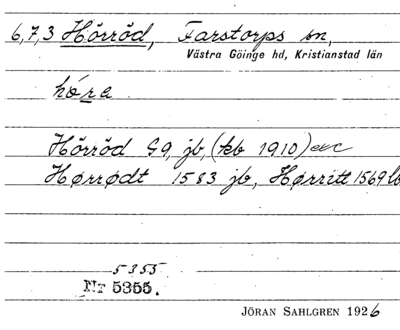 6,7,3 Hörröd, Farstorps sn,
Västra Göinge hd, Kristianstad län
hóra
Hörröd G9, jb, (kb 1910) etc
Hørrødt 1583 jb, Hørritt 1569 lb
5355
Nr 5355.
JÖRAN SAHLGREN 1926